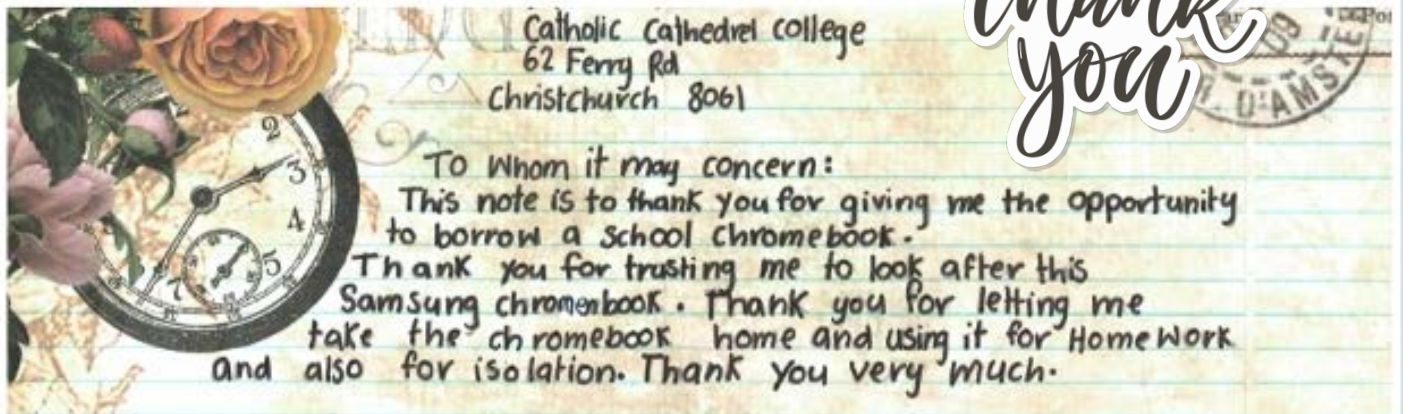 Catholic Cathedrel college
62 Ferry Rd
Christchurch 8061
thank
you
09
R. D'AMSTE
2
3
4
5
7
To Whom it may concern:
This note is to thank you for giving me the opportunity
to borrow a school chromebook.
Thank you for trusting me to look after this
Samsung chromenbook. Thank you for letting me
take the chromebook home and using it for HomeWork
and also for isolation. Thank you very much.